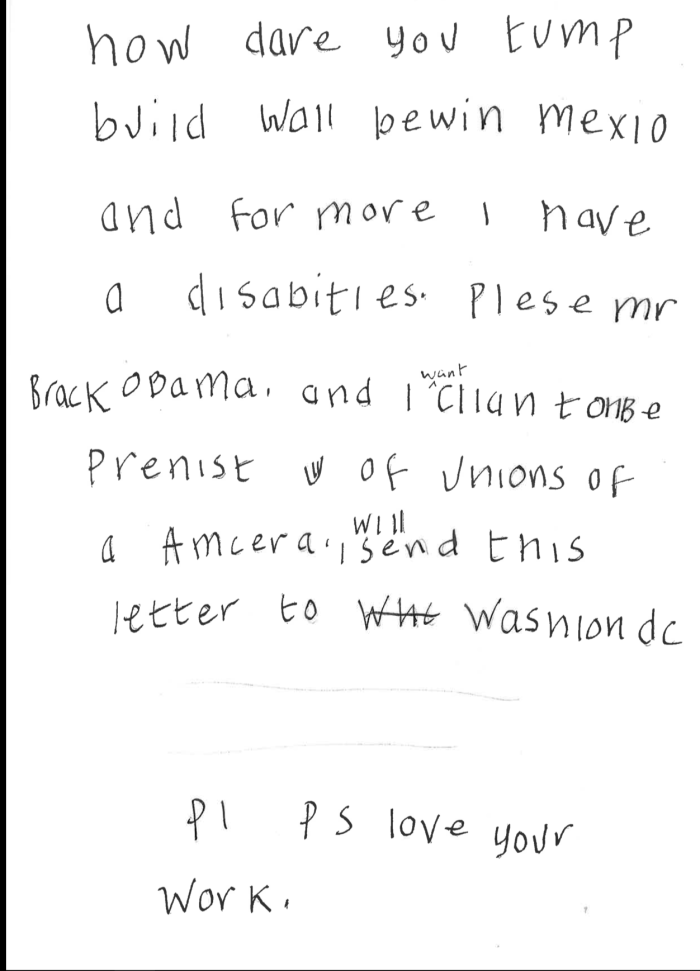 how dare you tump
build wall bewin mexio
and for more i have
a disabities. Plese mr
Brack obama. and I want Clian tonBe
Prenist of unions of
a Amcera. i will send this
letter to Wht Wasnion dc
Pl PS love your
work.